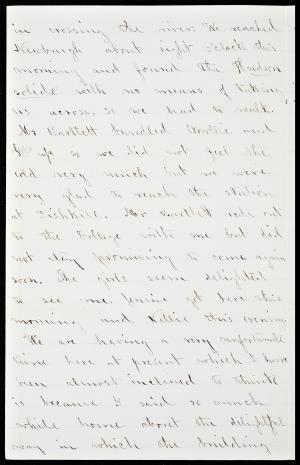 in crossing the river. We reached
Newburgh about eight o'clock this
morning and found the Hudson
solide with no means of taking
us across. so we had to walk.
Mr Bartlett bundled and
up so we did not feel the
cold very much but we were
very glad to reach the station
at Fishkill. Mr Bartlett rode out
to the College with me but did
not stay promising to come again
soon. The girls seem delighted
to see me. Jennie got here this
morning and Nellie this evening.
We are having a very unfortunate
time here at present which I have
been almost inclined to think
is because I said so much
while home about the delightful
way in which the building